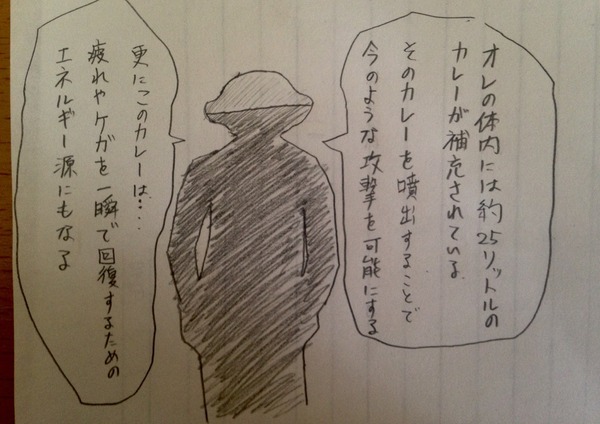 オレの体内には約25リットルの
カレーが補充されている
そのカレーを噴出することで
今のような攻撃を可能にする
更にこのカレーは・・・
疲れやケガを一瞬で回復するための
エネルギー源にもなる